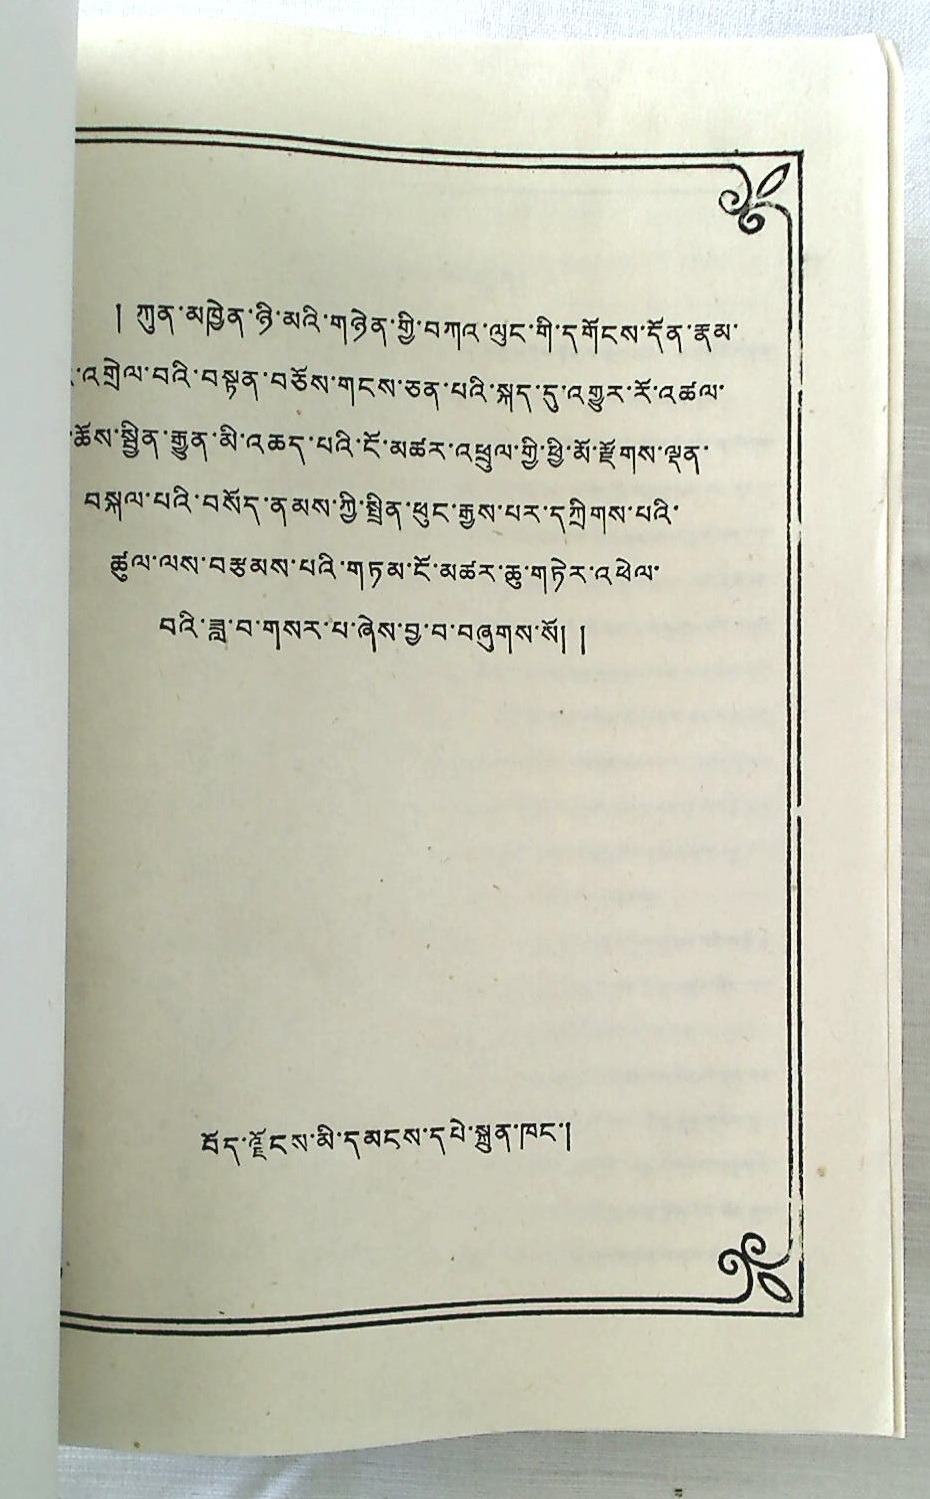 ། ཀུན་མཁྱེན་ཉི་མའི་གཉེན་གྱི་བཀའ་ལུང་གི་དགོངས་དོན་རྣམ་
འགྲེལ་བའི་བསྟན་བཅོས་གངས་ཅན་པའི་སྐད་དུ་འགྱུར་རོ་འཚལ་
ཆོས་སྦྱིན་རྒྱུན་མི་འཆད་པའི་ངོ་མཚར་འཕྲུལ་གྱི་ཕྱི་མོ་རྫོགས་ལྡན་
བསྐལ་པའི་བསོད་ནམས་ཀྱི་སྤྲིན་ཕུང་རྒྱས་པར་དཀྲིགས་པའི་
ཚུལ་ལས་བརྩམས་པའི་གཏམ་ངོ་མཚར་ཆུ་གཏེར་འཕེལ་
བའི་ཟླ་བ་གསར་པ་ཞེས་བྱ་བ་བཞུགས་སོ། །
བོད་ལྗོངས་མི་དམངས་དཔེ་སྐྲུན་ཁང་།